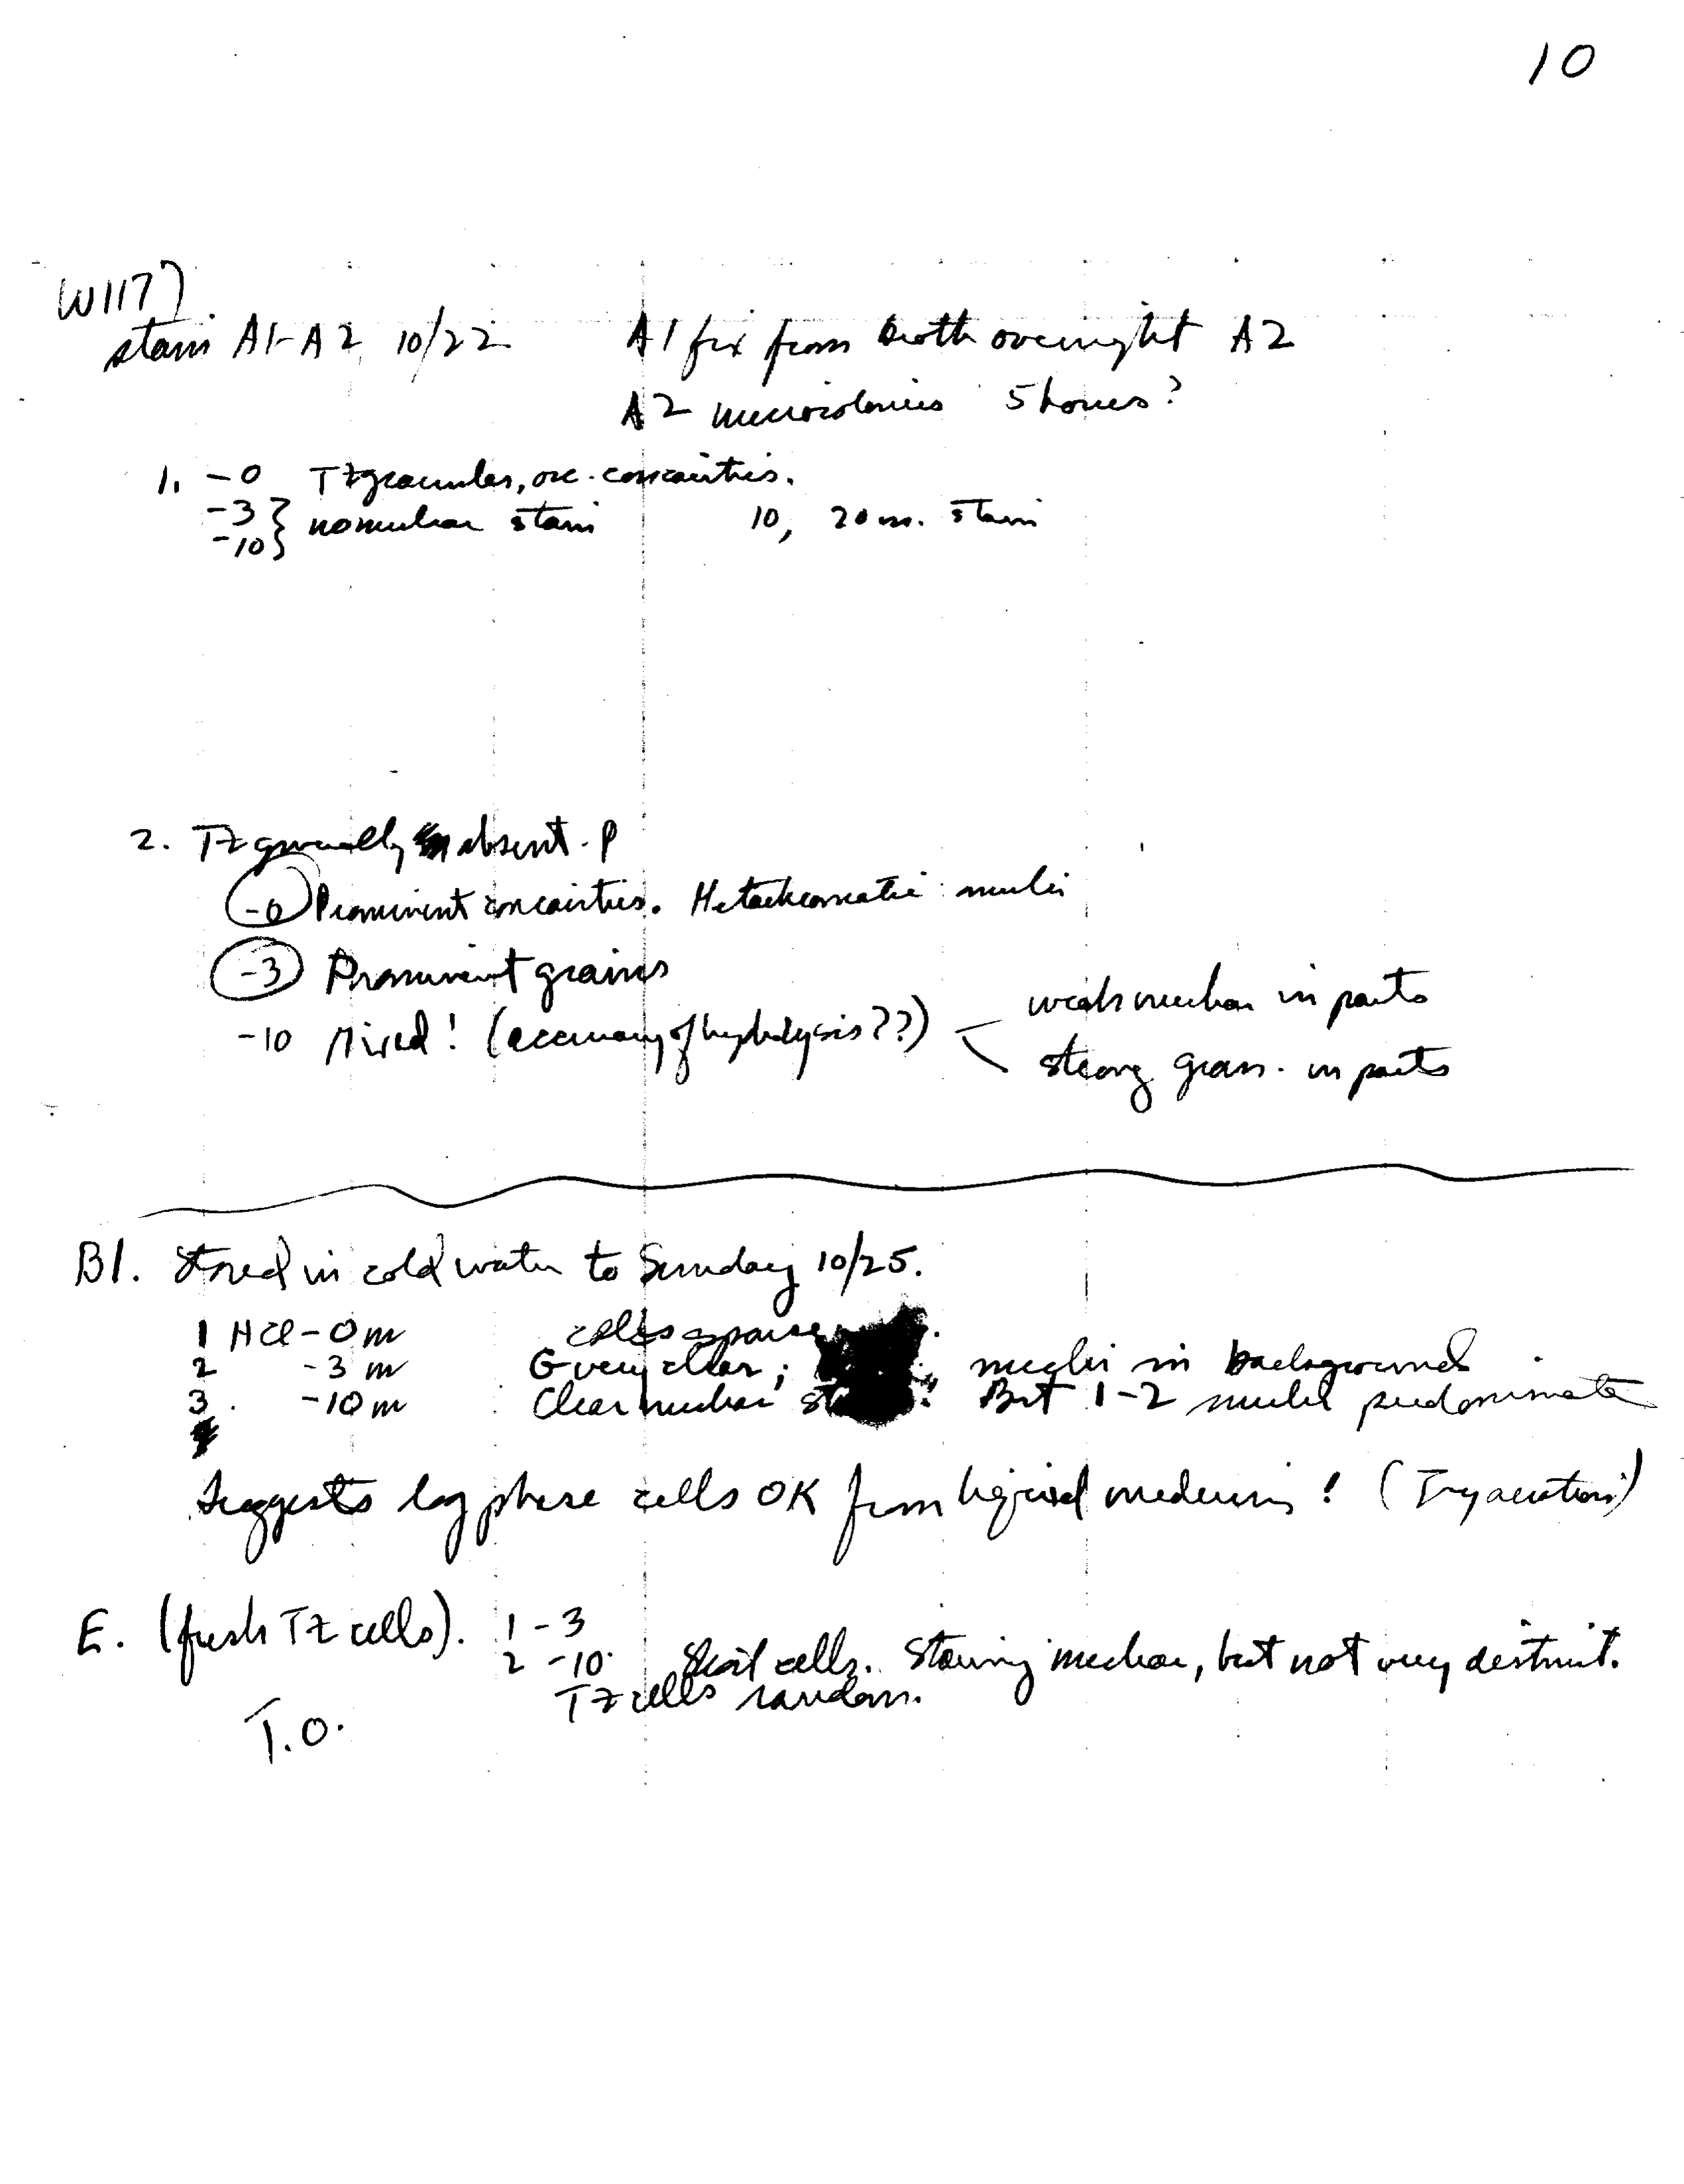 10
W1177
stain A1-A2 10/22 A1 fix from broth overnight A2
A2 microcolonies 5 hours?
1. -0 Tz granules, occ. concavities.
-3 } no nuclear stain 10, 20 m. stain
-10 }
2. Tz generally absent.
-0 Prominent concavities. Metachromatic nuclei
-3 Prominent grains
-10 Mixed! (accuracy of hydrolysis??) weak nuclear in parts
strong gran. in parts
B1. Stored in cold water to Sunday 10/25.
1 HCl -0 m cells sparse
2 -3 m G very clear; nuclei in background
3. -10 m Clear nuclear But 1-2 nuclei predominate
Suggests lag phase cells OK from liquid medium! (Try aeration)
E. (fresh Tz cells). 1 -3
2 -10. cells. Staining nuclear, but not very distinct.
Tz cells random.
T.O.